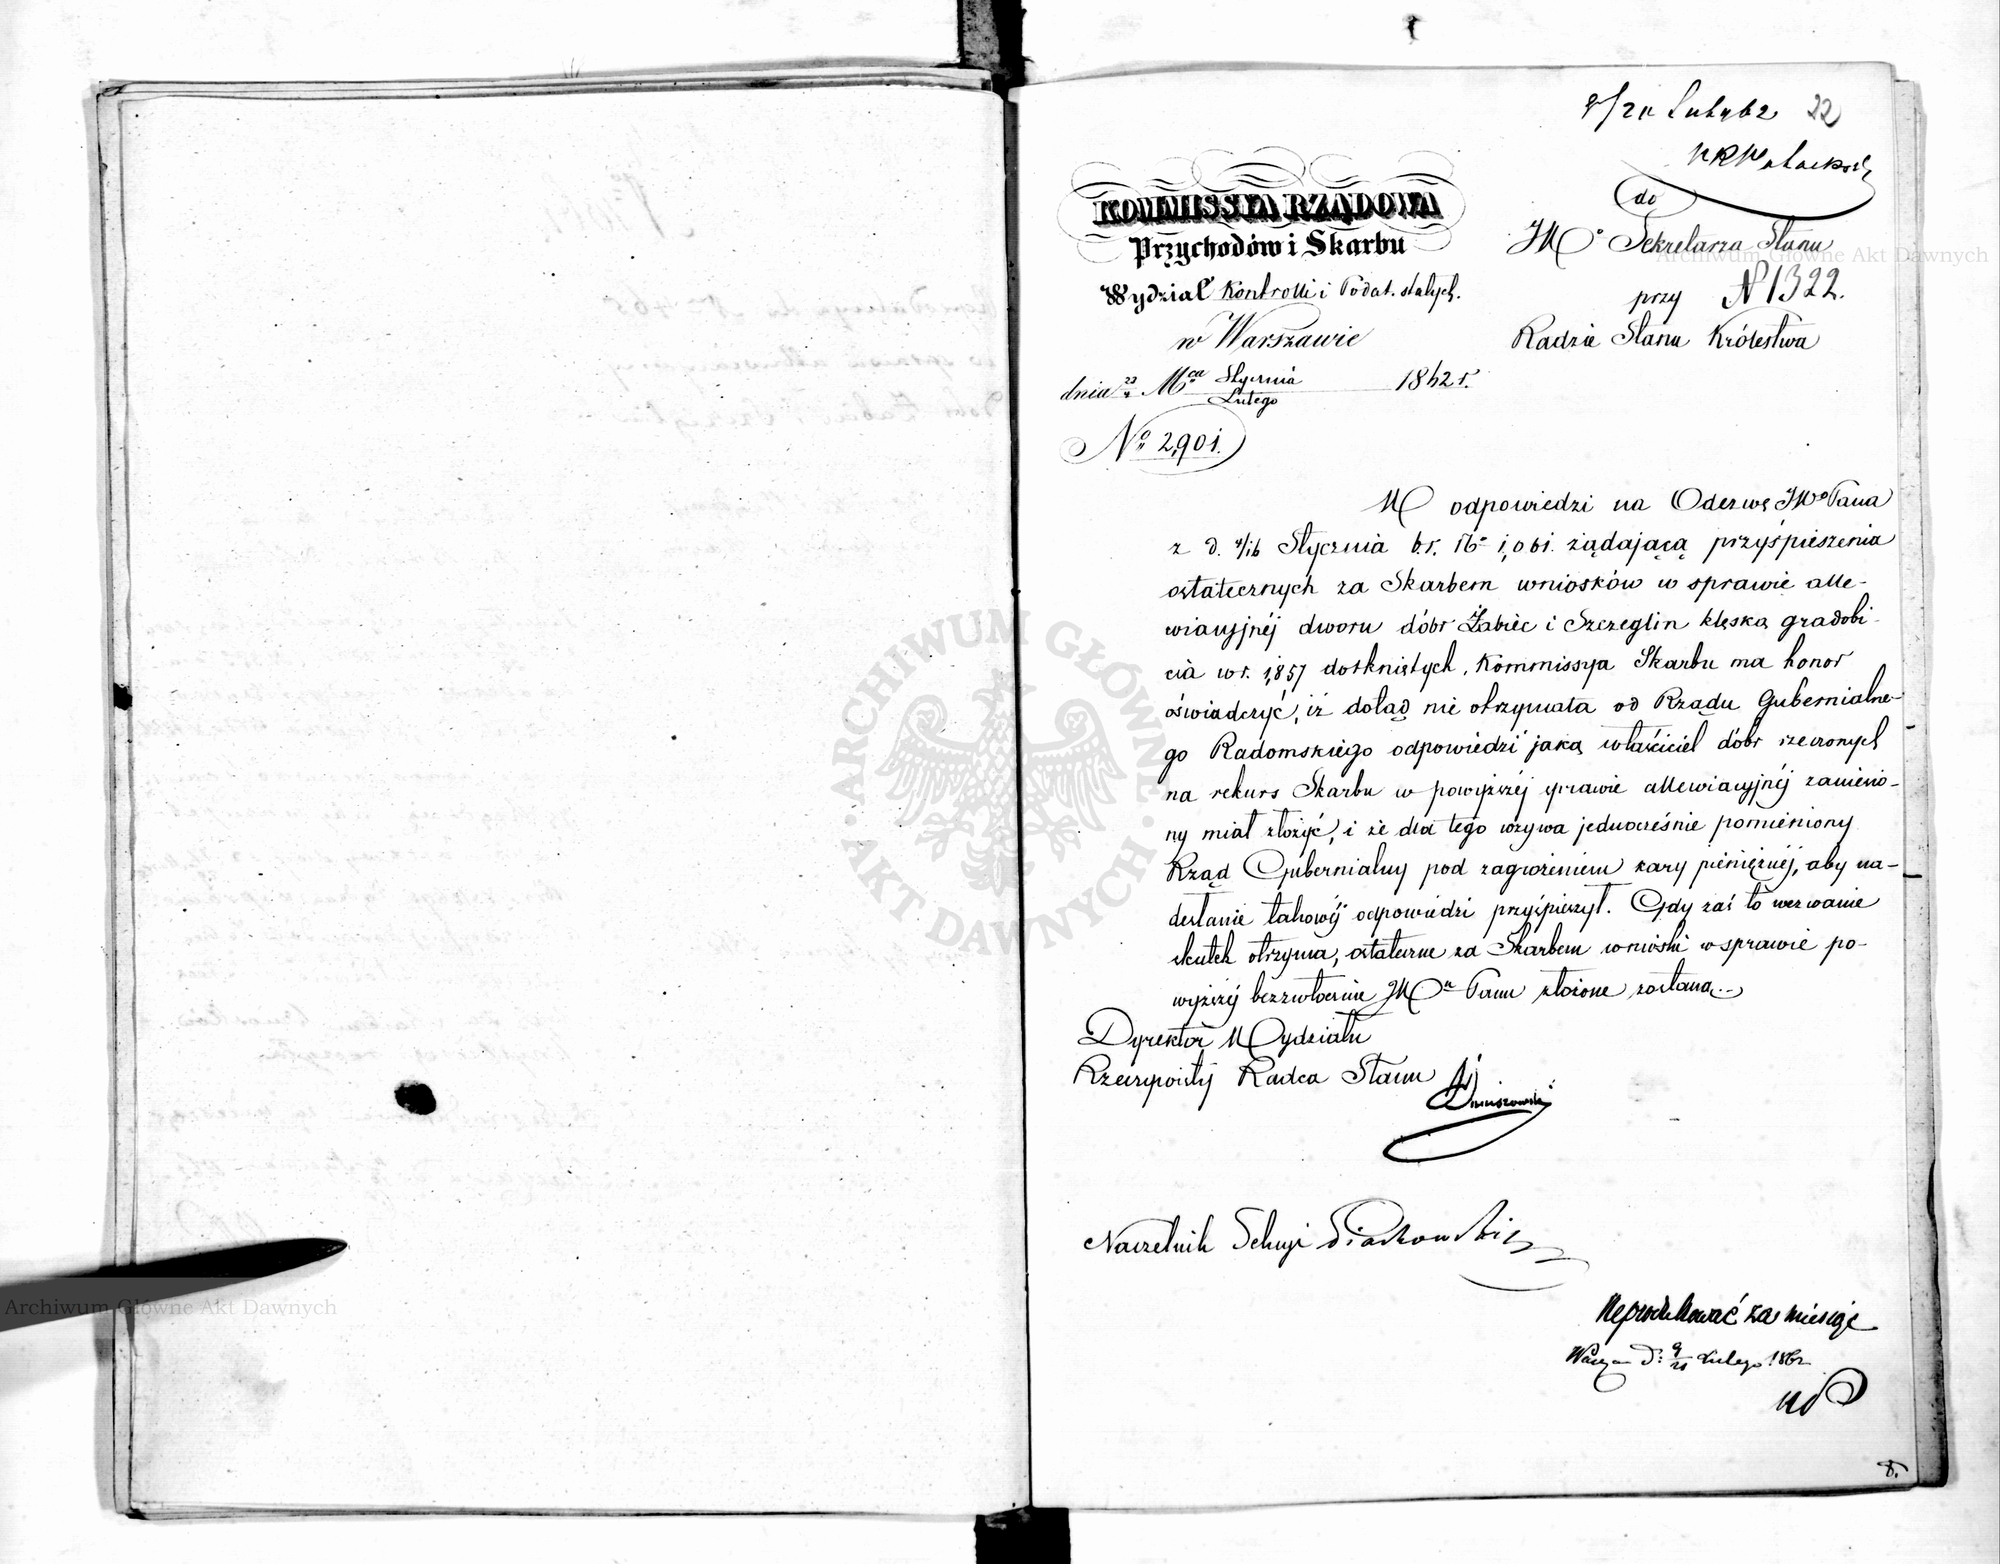 9/21 Lutego 62 22
do
JW° Sekretarza Stanu
przy N 1322.
Radzie Stanu Królestwa
KOMMISSYA RZĄDOWA
Przychodów i Skarbu
Wydział Kontrolli i Podat. stałych.
w Warszawie
dnia 23/4 Mca Stycznia/Lutego 1862 r.
No 2,901.
W odpowiedzi na Odezwę JWo Pana
z d. 4/16 Stycznia b.r. No 1,061. żądającą przyśpieszenia
ostatecznych za Skarbem wniosków w sprawie alle-
wiacyjnéj dworu dóbr Żabiec i Szczeglin klęską gradobi-
cia w r. 1,857 dotkniętych, Kommissya Skarbu ma honor
oświadczyć, iż dotąd nie otrzymała od Rządu Gubernialne-
go Radomskiego odpowiedzi jaką właściciel dóbr rzeczonych
na rekurs Skarbu w powyższéj sprawie allewiacyjnéj zaniesio-
ny miał złożyć, i że dla tego wzywa jednocześnie pomieniony
Rząd Gubernialny pod zagrożeniem kary pieniężnéj, aby na-
desłanie takowéj odpowiedzi przyśpieszył. Gdy zaś to wezwanie
skutek otrzyma, ostateczne za Skarbem wnioski w sprawie po-
wyższéj bezzwłocznie JWu Panu złożone zostaną.
Dyrektor Wydziału
Rzeczywisty Radca Stanu
Naczelnik Sekcyi Piaskowski
Reprodukować za miesiąc
Warsz d: 9/21 Lutego 1862
8.
ARCHIWUM GŁÓWNE AKT DAWNYCH
Archiwum Główne Akt Dawnych
Archiwum Główne Akt Dawnych